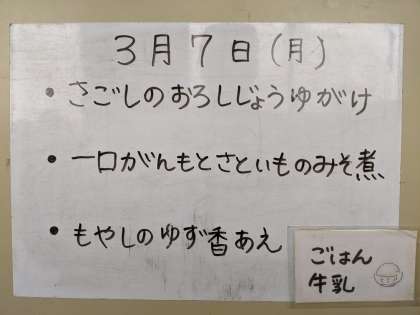 3月7日(月)
• さごしのおろしじょうゆがけ
• 一口がんもとさといものみそ煮
• もやしのゆず香あえ
ごはん
牛乳